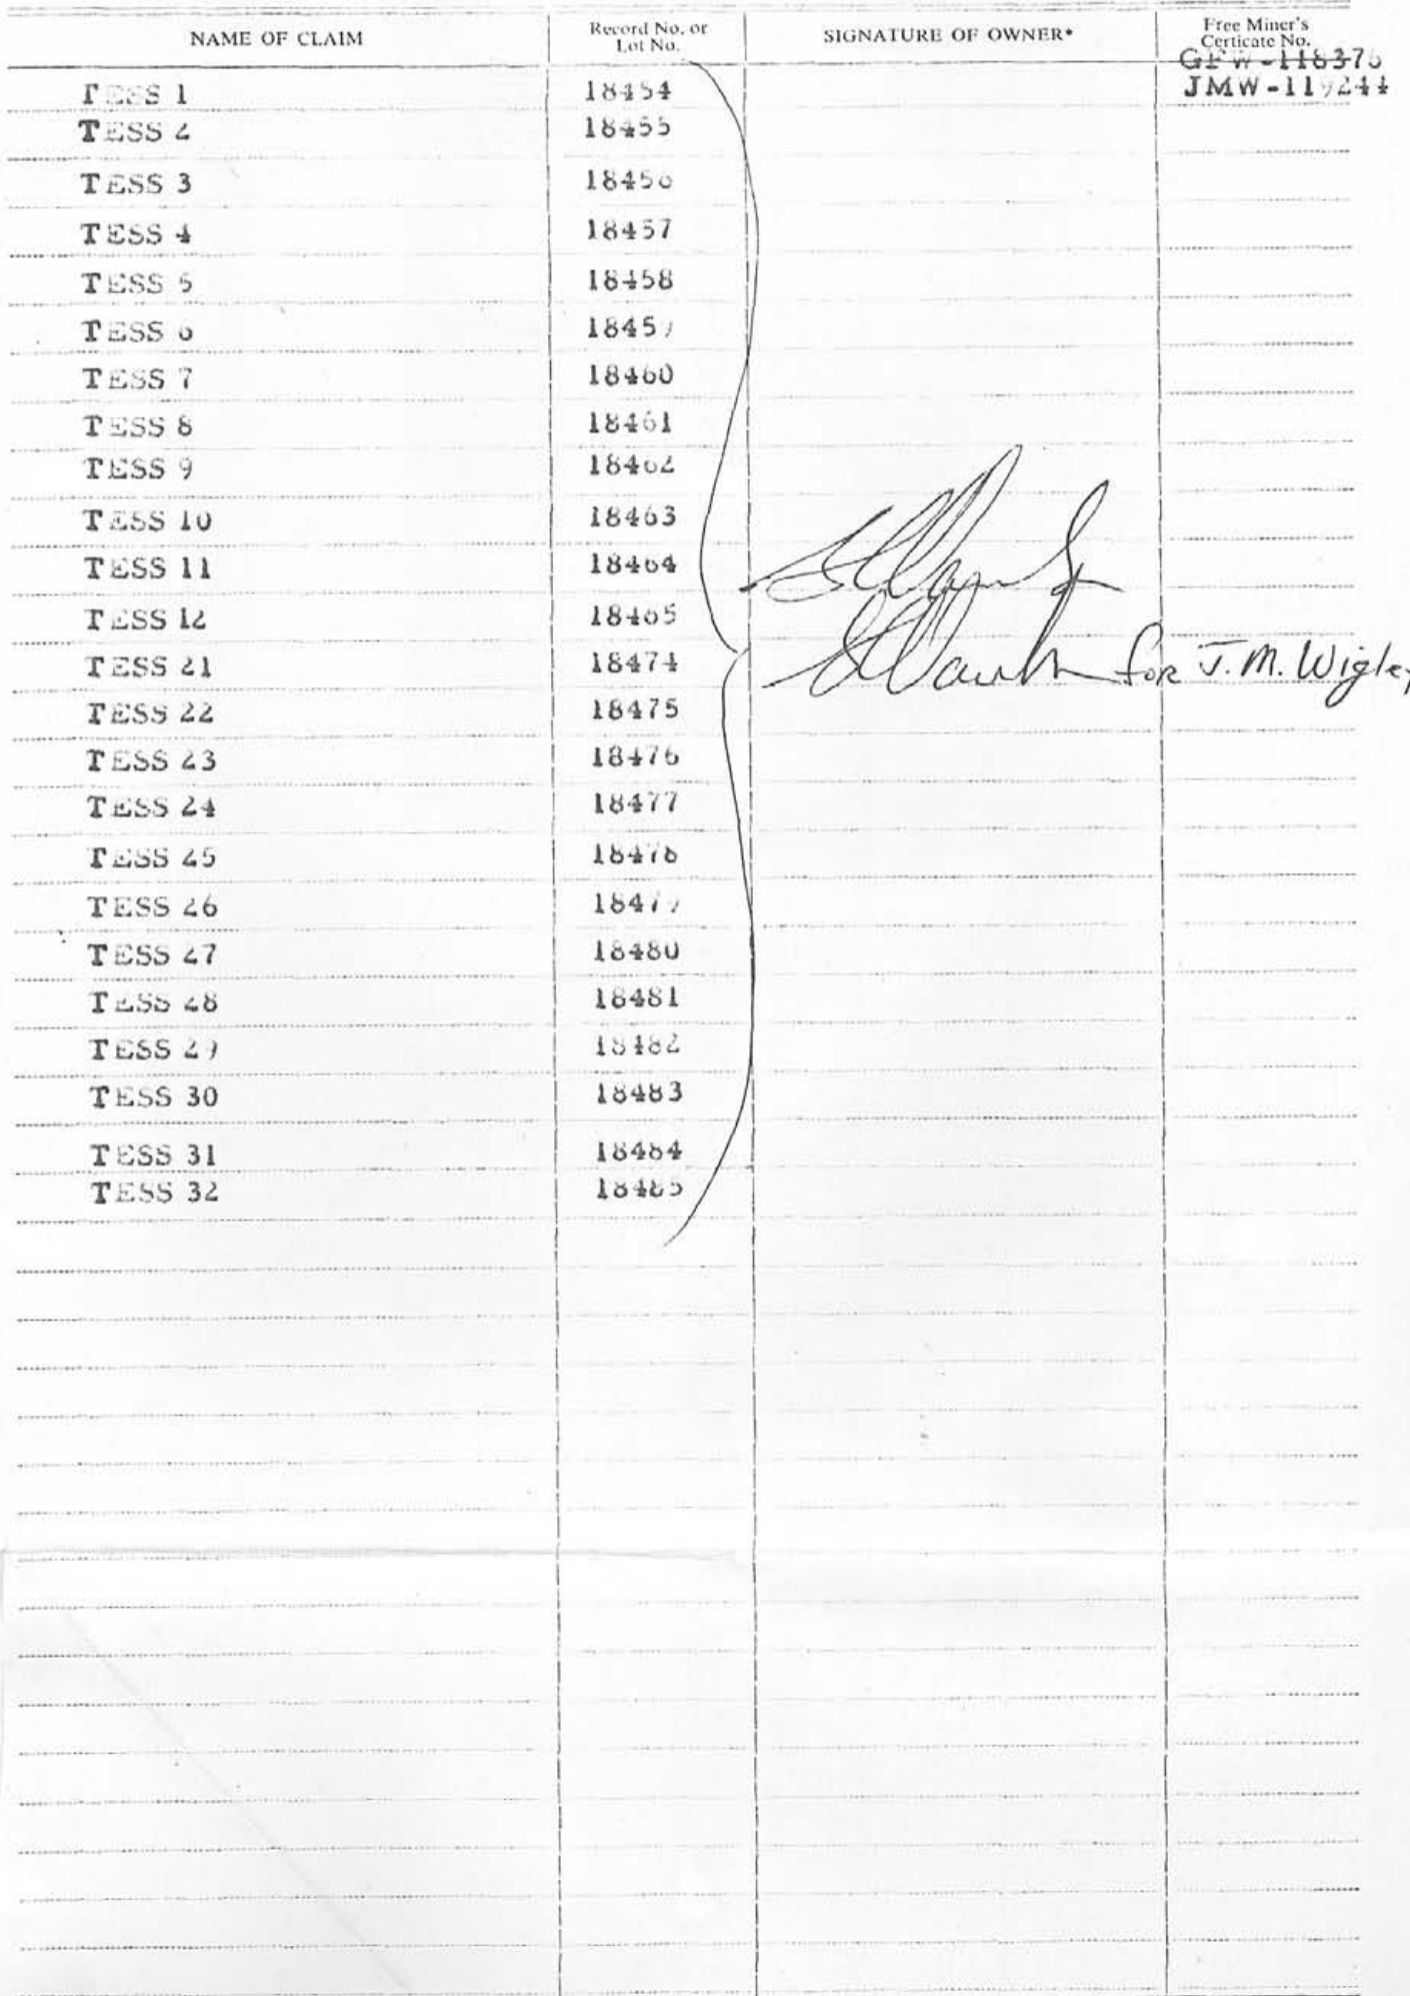 NAME OF CLAIM Record No. or Lot No. SIGNATURE OF OWNER* Free Miner's Certicate No.
GFW-118376
JMW-119244
TESS 1 18454
TESS 2 18455
TESS 3 18456
TESS 4 18457
TESS 5 18458
TESS 6 18459
TESS 7 18460
TESS 8 18461
TESS 9 18462
TESS 10 18463
TESS 11 18464
TESS 12 18465
TESS 21 18474 for J.M. Wigley
TESS 22 18475
TESS 23 18476
TESS 24 18477
TESS 25 18478
TESS 26 18479
TESS 27 18480
TESS 28 18481
TESS 29 18482
TESS 30 18483
TESS 31 18484
TESS 32 18485